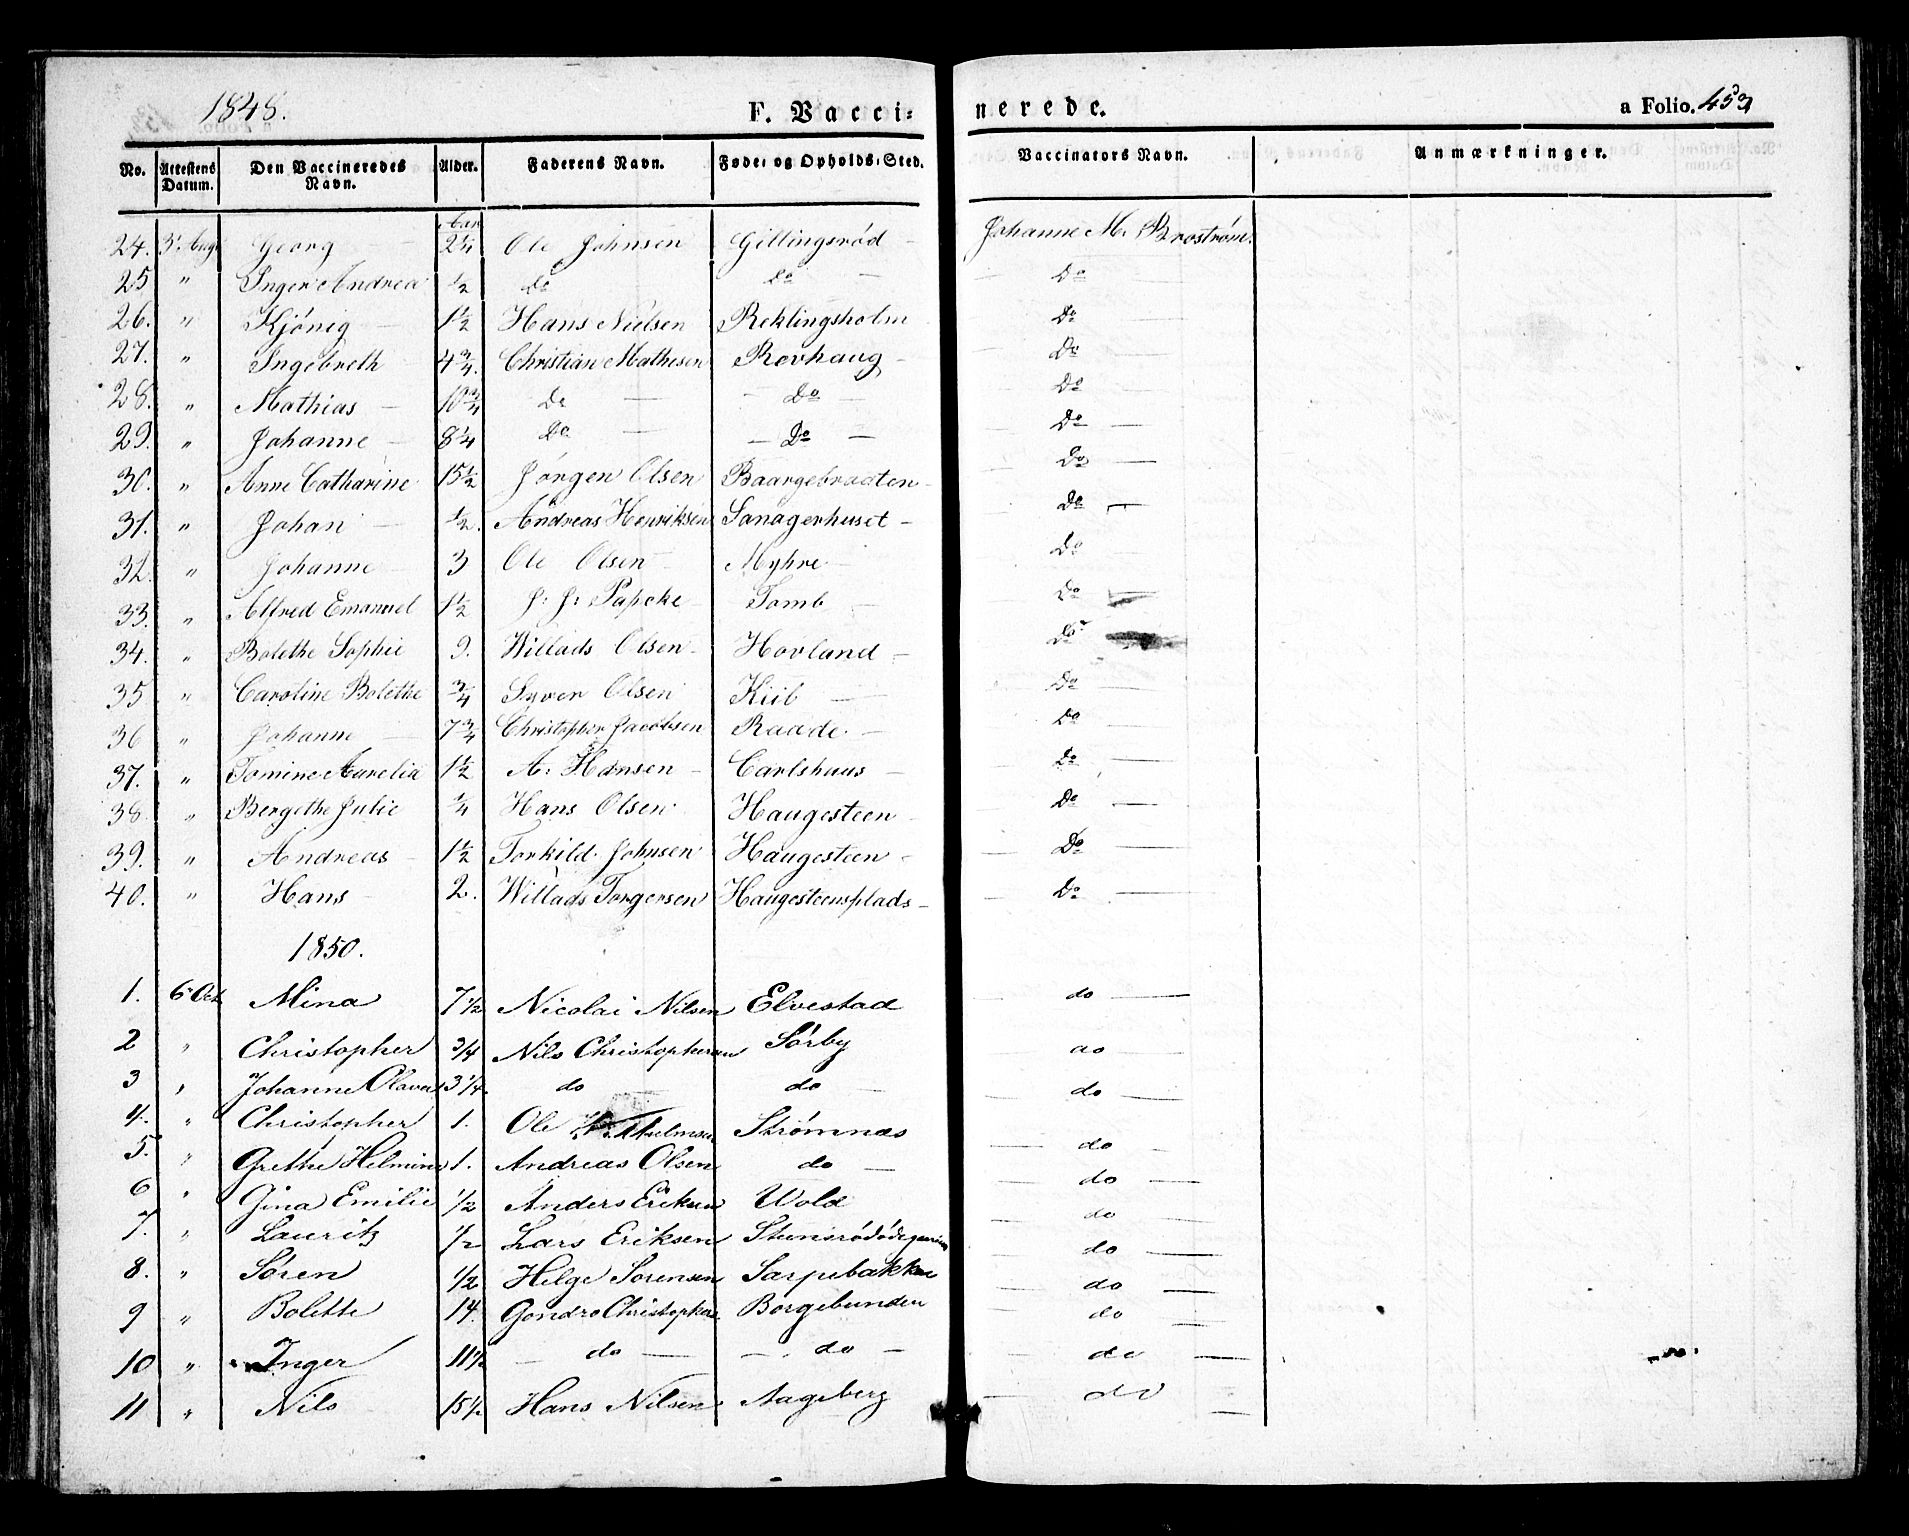 1848. F. Vacci: nerede. a Folio. 453
No. Attestens Datum. Den Vaccineredes Navn. Alder. Faderens Navn. Føde: og Opholds:Sted. Vaccinators Navn. Anmærkninger.
Aar
24. 3. Aug. Georg 2 1/4 Ole Johnsen Gillingsrød Johanne M. Broström.
25 " Inger Andrea 1/2 do do Do
26. " Kjönig 1 1/2 Hans Nielsen Reklingsholm Do
27. " Ingebreth 4 3/4. Christian Mathisen Rovhaug Do
28. " Mathias 10 3/4 Do Do Do
29. " Johanne 8 1/4 Do Do Do
30. " Anne Catharine 15 1/2 Jørgen Olsen Baargebraaten Do
31. " Johan 1/2. Andreas Henriksen Sanagerhuset Do
32. " Johanne 3 Ole Olsen Myhre Do
33. " Alfred Emanuel 1 1/2 J: J: Papcke Tomb Do
34. " Bolethe Sophie 9. Willads Olsen Hovland Do
35 " Caroline Bolethe 3/4 Syver Olsen Kiib Do
36 " Johanne 7 3/4 Christopher Jacobsen Raade. Do
37. " Tomine Aurelia 1 1/2 A. Hansen Carlshuus Do
38. " Bergithe Julie 1/4 Hans Olsen Haugesteen Do
39. " Andreas 1 1/2 Torkild Johnsen Haugesteen Do
40. " Hans 2. Willads Torgersen Haugesteensplads Do
1850.
1. 6 Oct Mina 7 1/2 Nicolai Nilsen Elvestad do
2 " Christopher 3/4 Nils Christophersen Sörby do
3 " Johanne Olava 3 1/4. do do do
4. " Christopher 1. Ole Strømnæs do
5. " Grethe Helmine 1. Andreas Olsen do do
6 " Gina Emilie 1/2 Anders Eriksen Wold do
7. " Lauritz 1/2 Lars Eriksen do
8. " Søren 1/2 Helge Sorensen Sarpebakken do
9 " Bolette 14. Gondro Christophers. Borgebunden do
10 " Inger 11 1/2 do do do
11 " Nils 15 1/2 Hans Nilsen Aageberg do